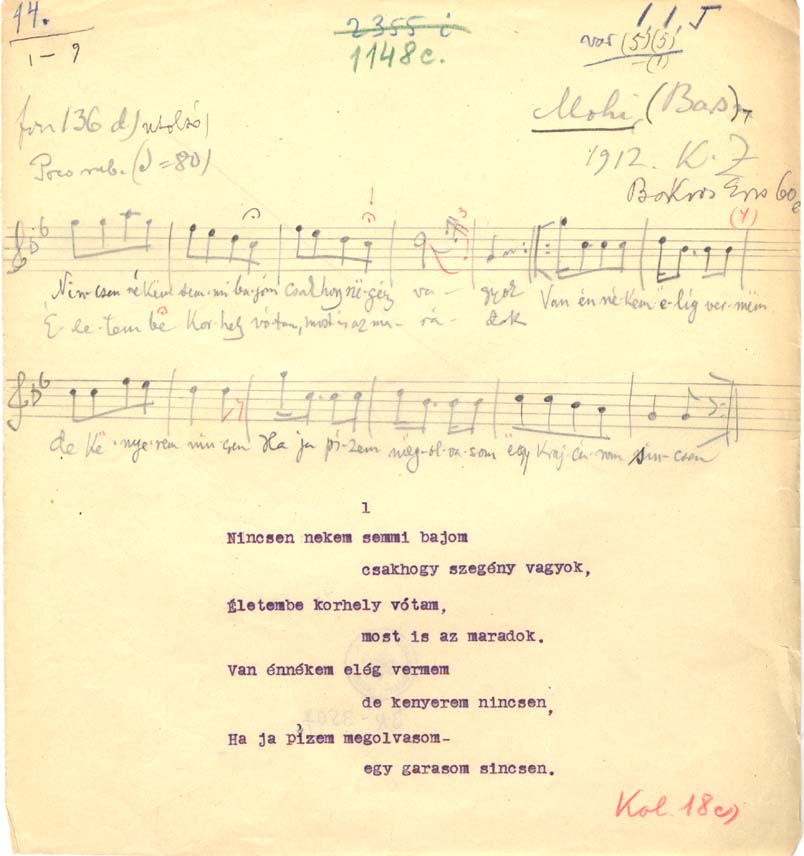 14.
1-9
2355 i
1148c.
1, 1, 5
var (5)(5)
(1)
fon 136 d) utolsó
Poco rub. (♩=80)
Mohi, (Bars)
1912. K. Z
Bakros 60
(4)
Nin-csen né-kem sem-mi ba-jom csak hogy szë-gény va- gyok Van én né-kem ë-lég ver-mëm
É-le-tem bë Kor-hely vótam, most is az ma-rá- dok
de kë-nye-rem nin-csen Ha ja pi-zem mëg-ol-va-som ëgy kraj-cá-rom sin-csen
1
Nincsen nekem semmi bajom
csakhogy szegény vagyok,
Életembe korhely vótam,
most is az maradok.
Van énnékem elég vermem
de kenyerem nincsen,
Ha ja pízem megolvasom-
egy garasom sincsen.
Kol. 18c)